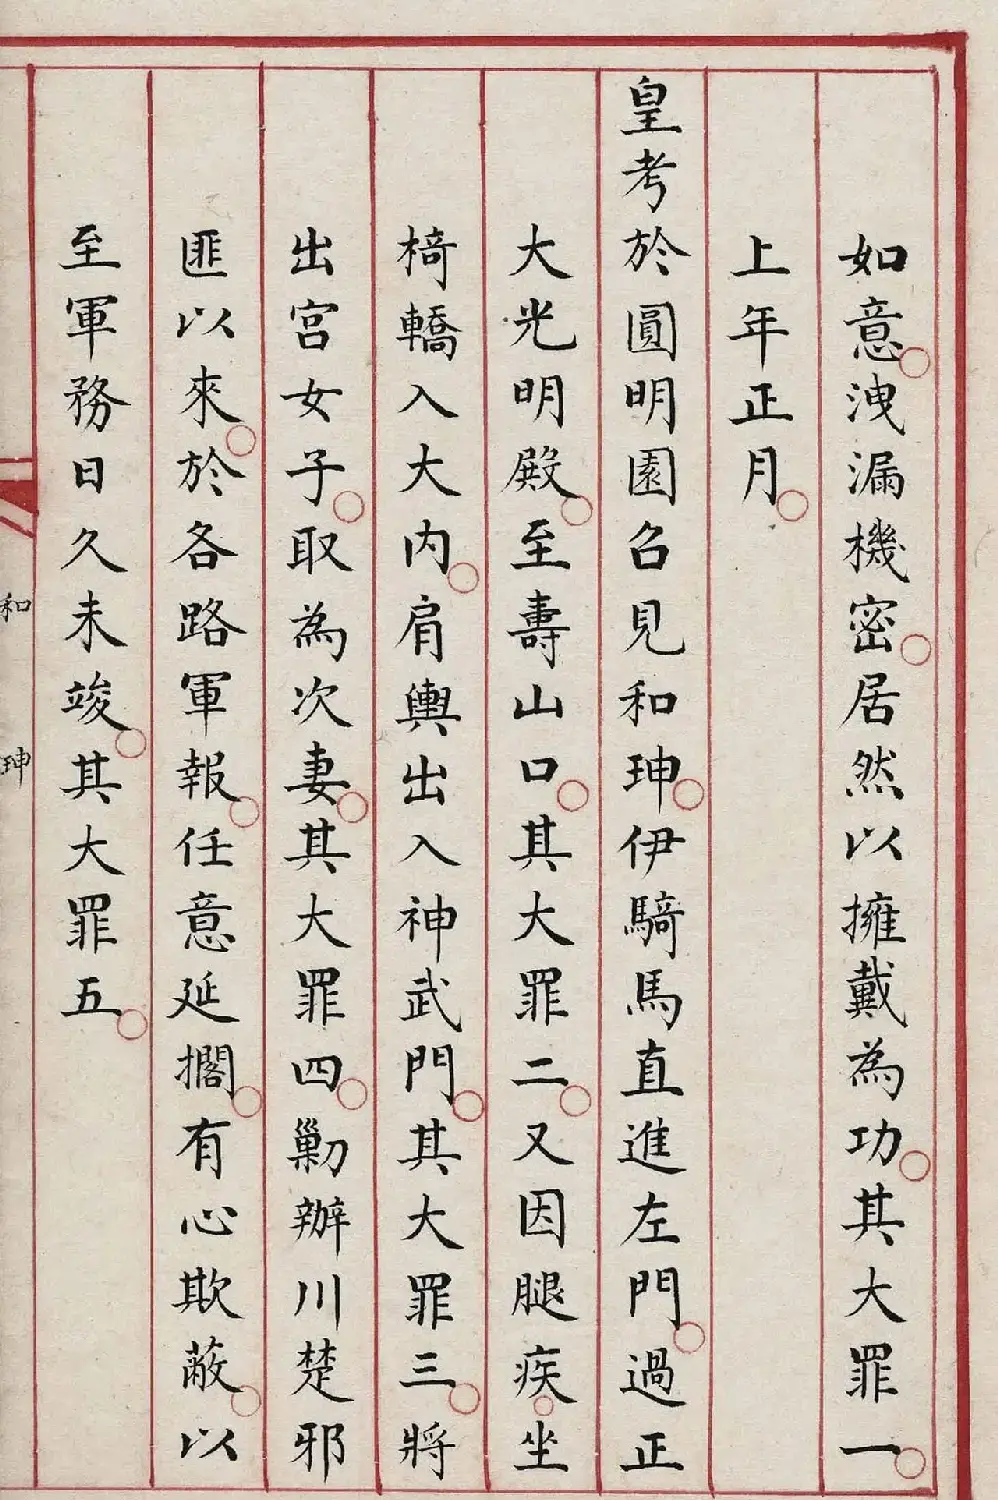 如意洩漏機密居然以擁戴為功其大罪一
上年正月
皇考於圓明園召見和珅伊騎馬直進左門過正
大光明殿至壽山口其大罪二又因腿疾坐
椅轎入大內肩輿出入神武門其大罪三將
出宮女子取為次妻其大罪四勦辦川楚邪
匪以來於各路軍報任意延擱有心欺蔽以
至軍務日久未竣其大罪五
和珅